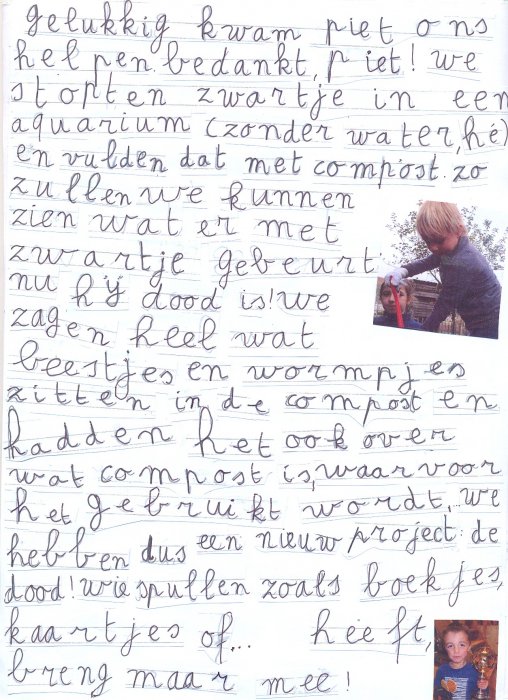 gelukkig kwam piet ons
helpen. bedankt, piet! we
stopten zwartje in een
aquarium (zonder water, hé)
en vulden dat met compost. zo
zullen we kunnen
zien wat er met
zwartje gebeurt
nu hij dood is! we
zagen heel wat
beestjes en wormpjes
zitten in de compost en
hadden het ook over
wat compost is, waarvoor
het gebruikt wordt,. we
hebben dus een nieuw project: de
dood! wie spullen zoals boekjes,
kaartjes of... heeft,
breng maar mee!